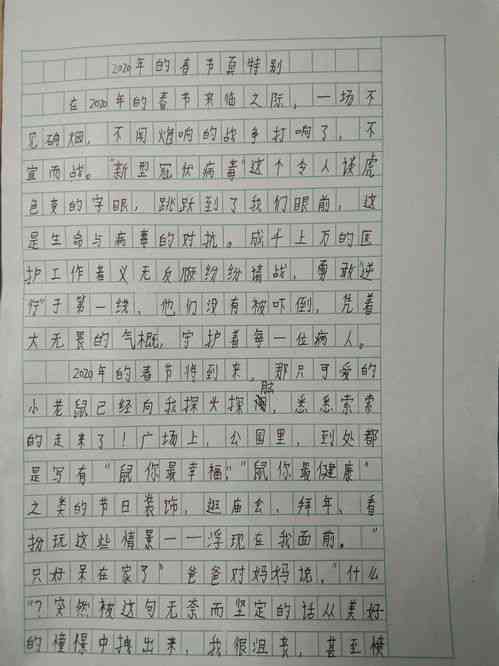 2020年的春节真特别
在2020年的春节来临之际，一场不
见硝烟，不闻炮响的战争打响了，不
宣而战。"新型冠状病毒"这个令人谈虎
色变的字眼，跳跃到了我们眼前，这
是生命与病毒的对抗。成千上万的医
护工作者义无反顾纷纷请战，勇敢"逆
行"于第一线，他们没有被吓倒，凭着
大无畏的气概，守护着每一位病人。
2020年的春节将到来，那只可爱的
小老鼠已经向我探头探脑，悉悉索索
的走来了！广场上，公园里，到处都
是写有"鼠你最幸福"，"鼠你最健康"
之类的节日装饰，逛庙会、拜年、看
扮玩这些情景一一浮现在我面前。"
只好呆在家了"爸爸对妈妈说，"什么
"？突然被这句无奈而坚定的话从美好
的憧憬中拽出来，我很沮丧，甚至愤